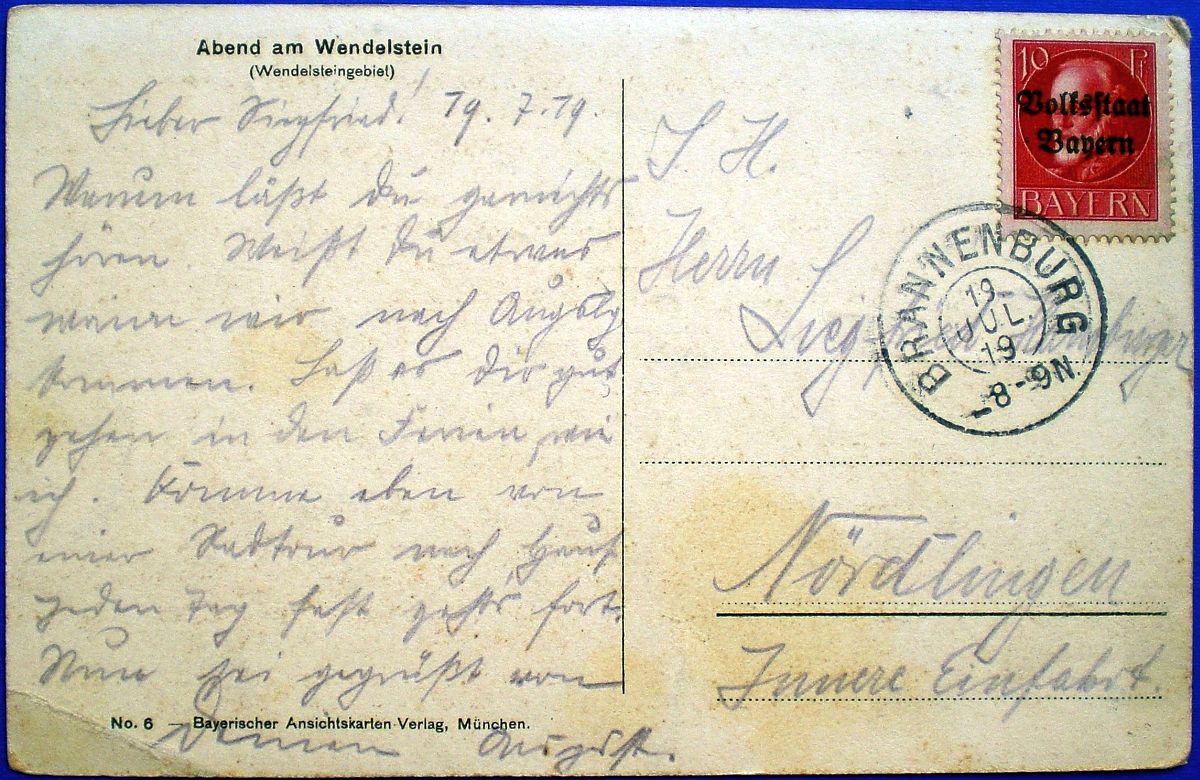 Abend am Wendelstein
(Wendelsteingebiet)
Lieber Siegfried! 19. 7. 19.
Warum läßt du garnichts
hören. Weißt du etwas
wann wir nach Augsbg
kommen. Laß es dir gut
gehen in den Ferien wie
ich. Komme eben von
einer Radtour nach Hause
jeden Tag fast geht's fort.
Nun sei gegrüßt von
Deinem August.
No. 6 — Bayerischer Ansichtskarten-Verlag, München.
S. H.
Herrn
Siegfried
Nördlingen
Innere Einfahrt
10 Pf
Volksstaat
Bayern
BAYERN
BRANNENBURG
19.
JUL.
19
8-9N.